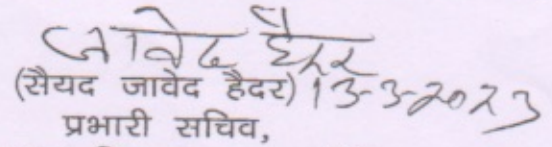 जावेद हैदर
(सैयद जावेद हैदर) 13-3-2023
प्रभारी सचिव,